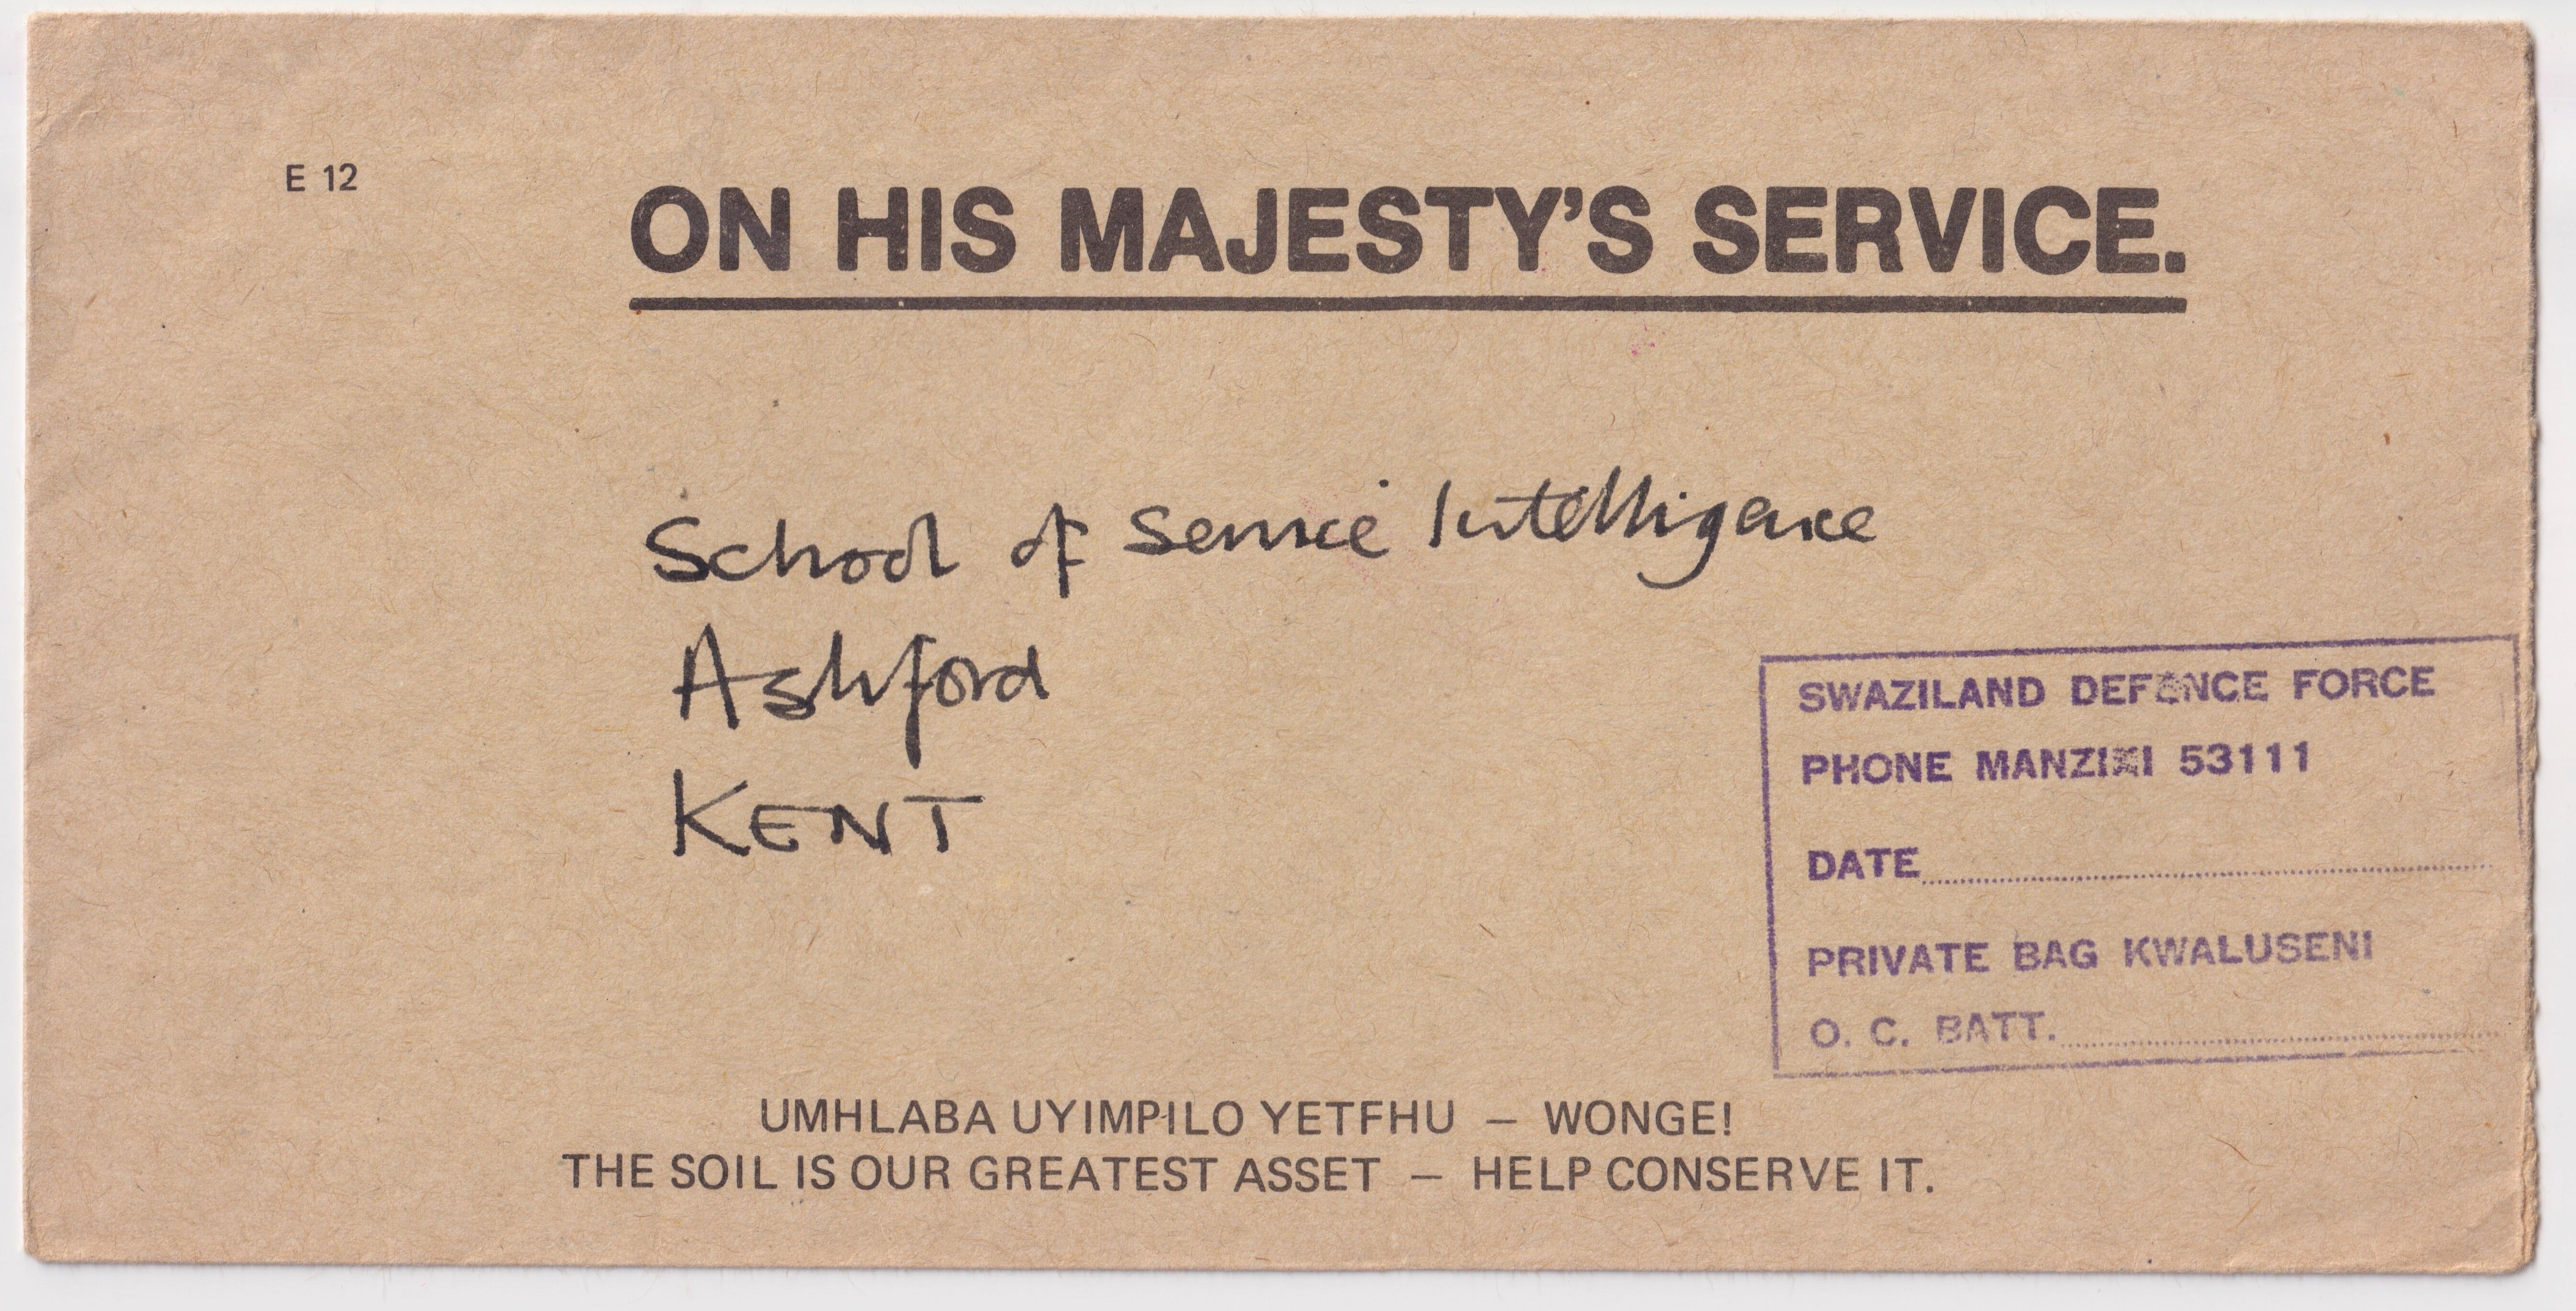 E 12
ON HIS MAJESTY'S SERVICE.
School of Service Intelligence
Ashford
KENT
SWAZILAND DEFENCE FORCE
PHONE MANZINI 53111
DATE
PRIVATE BAG KWALUSENI
O. C. BATT.
UMHLABA UYIMPILO YETFHU – WONGE!
THE SOIL IS OUR GREATEST ASSET – HELP CONSERVE IT.